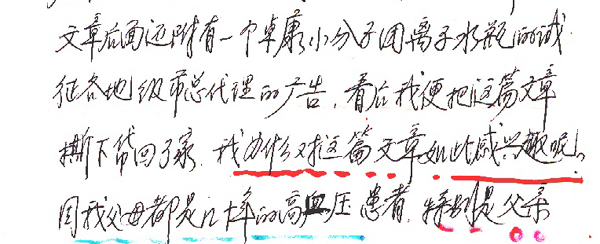 文章后面还附有一个卓康小分子团离子水瓶的诚
征各地级市总代理的广告，看后我便把这篇文章
撕下带回了家，我为什么对这篇文章如此感兴趣呢，
因我父母都是几十年的高血压患者，特别是父亲